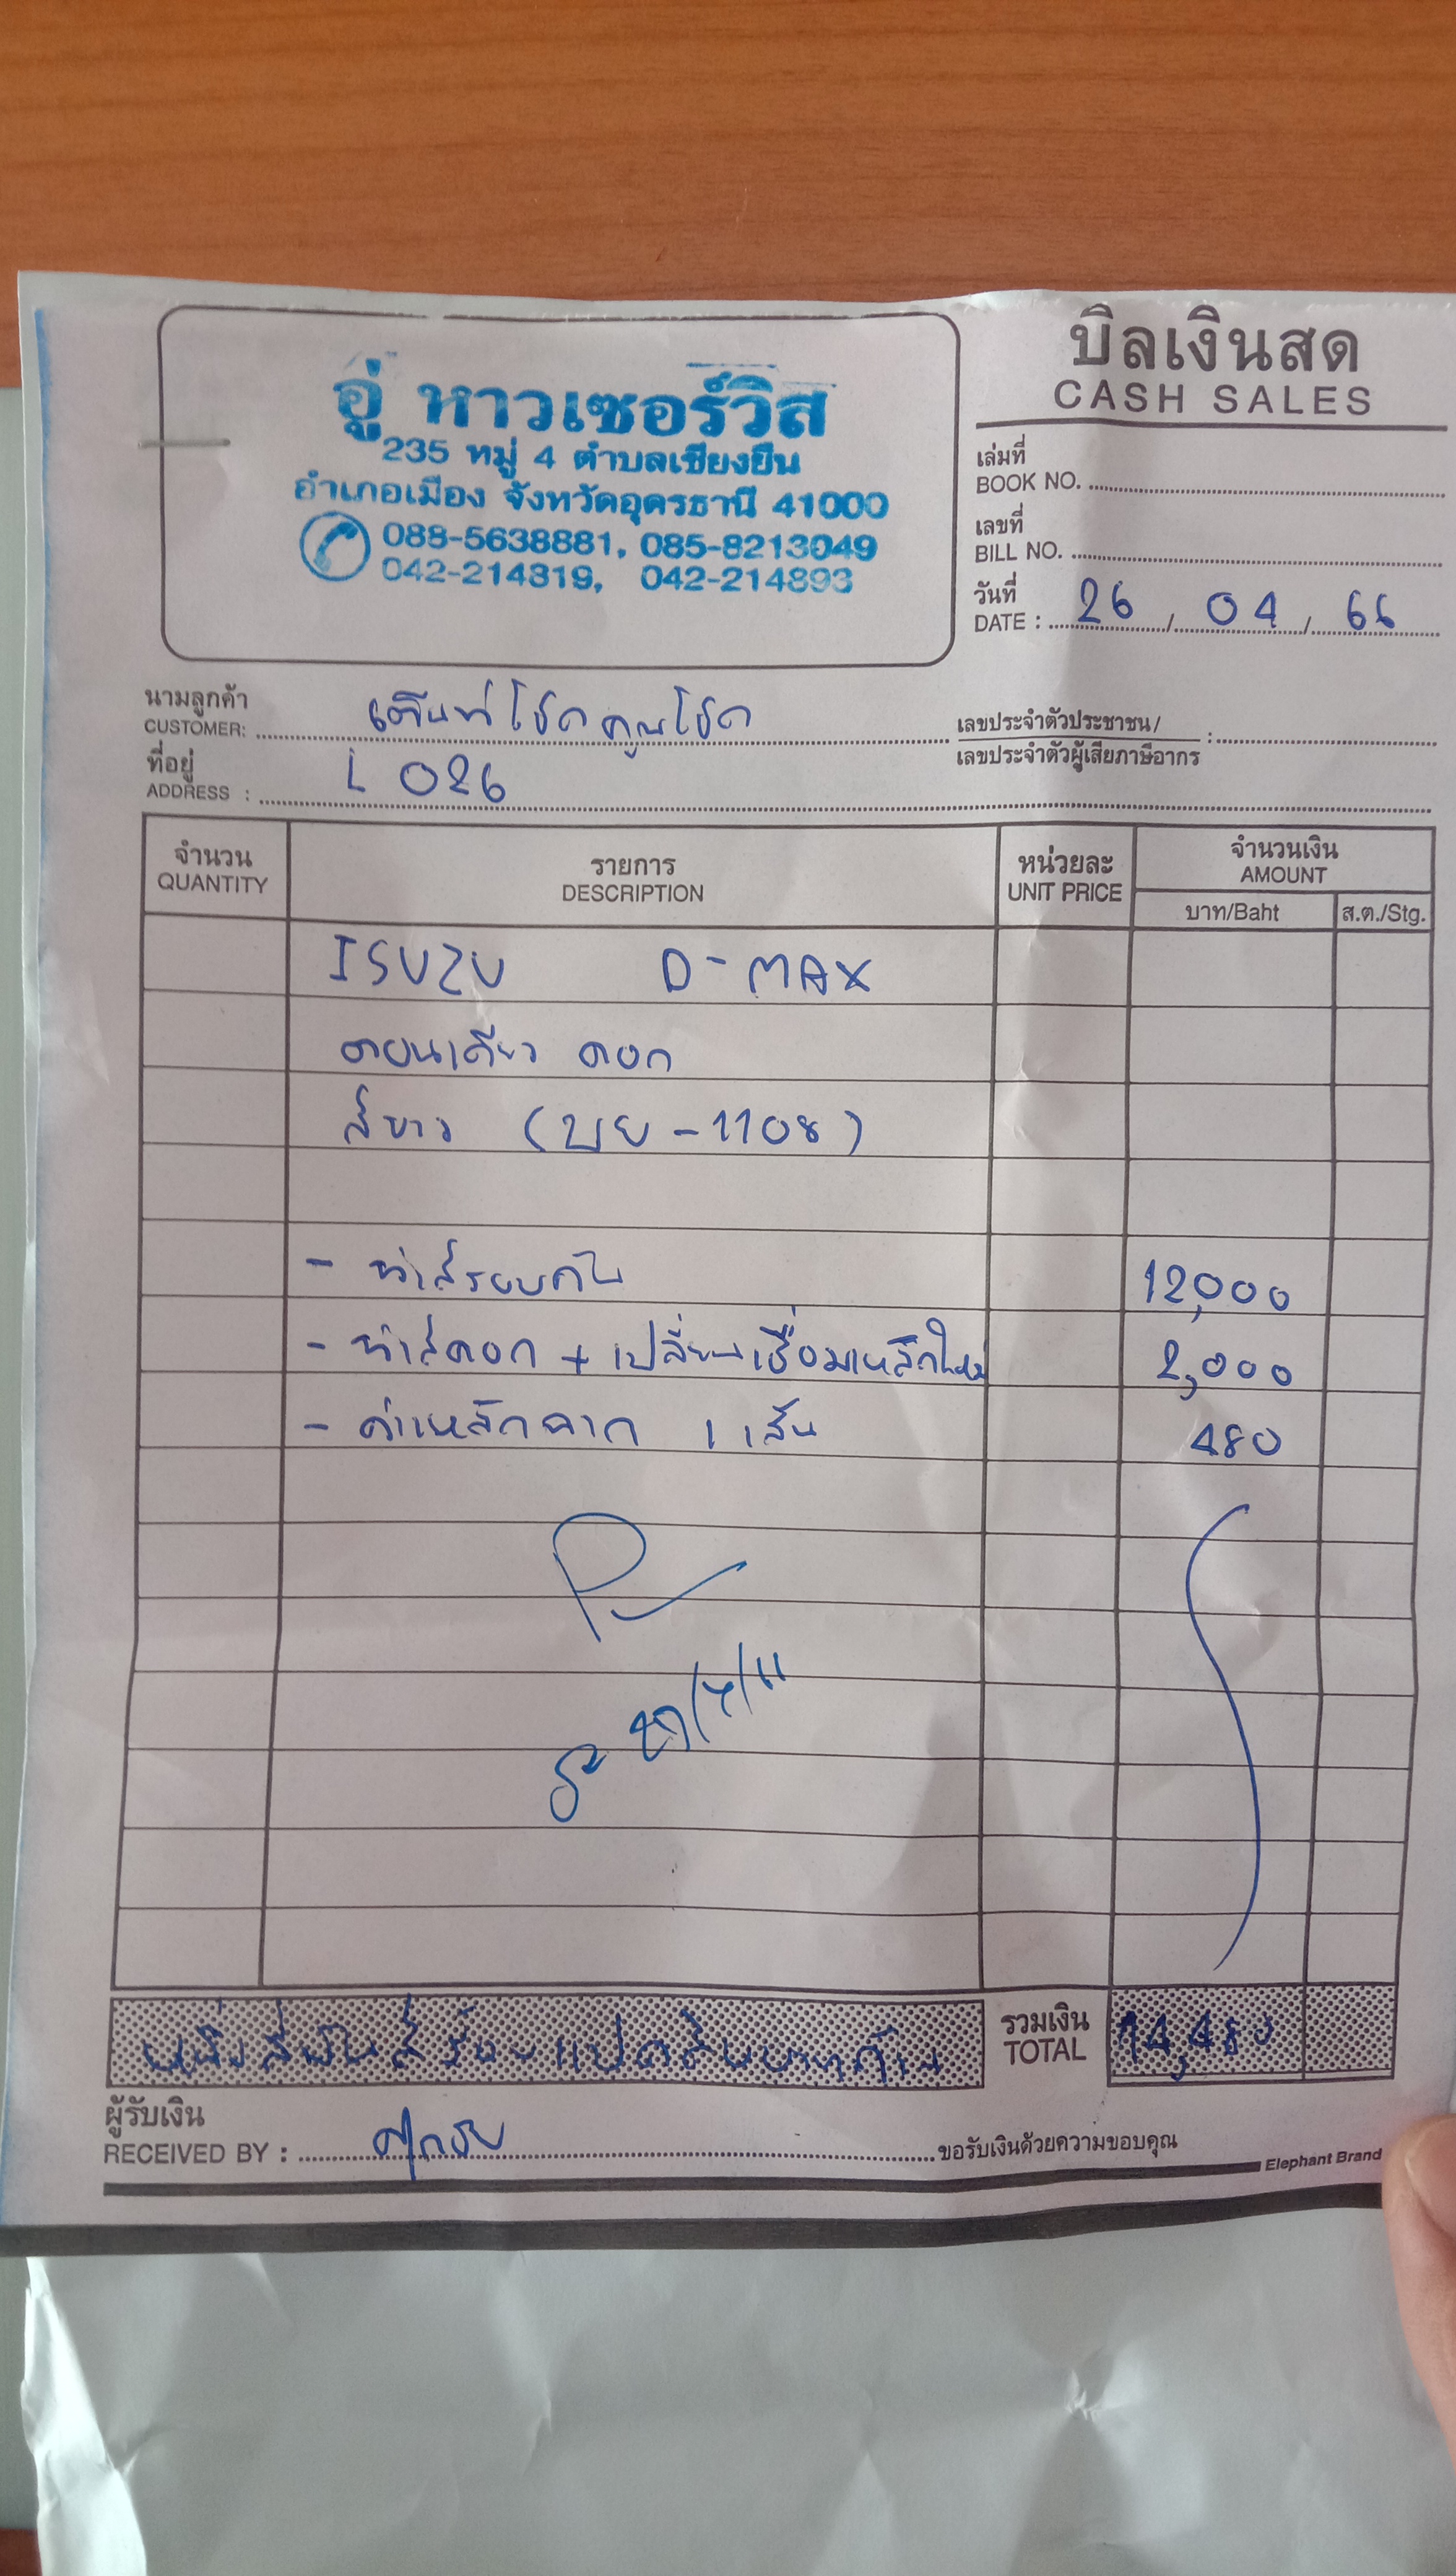 อู่ หาวเซอร์วิส
235 หมู่ 4 ตำบลเชียงยืน
อำเภอเมือง จังหวัดอุดรธานี 41000
088-5638881, 085-8213049
042-214819, 042-214893
บิลเงินสด
CASH SALES
เล่มที่
BOOK NO.
เลขที่
BILL NO.
วันที่
DATE : 26 / 04 / 66
นามลูกค้า
CUSTOMER: เต็นท์โชคคูณโชค
เลขประจำตัวประชาชน/
เลขประจำตัวผู้เสียภาษีอากร :
ที่อยู่
ADDRESS : L 026
จำนวน
QUANTITY
รายการ
DESCRIPTION
หน่วยละ
UNIT PRICE
จำนวนเงิน
AMOUNT
บาท/Baht
ส.ต./Stg.
ISUZU D-MAX
ตอนเดียว คอก
สีขาว (บย-1108)
- ทำสีรอบคัน 12,000
- ทำสีคอก + เปลี่ยนเชื่อมเหล็กใหม่ 2,000
- ค่าเหล็กฉาก 1 เส้น 480
หนึ่งหมื่นสี่พันสี่ร้อยแปดสิบบาทถ้วน
รวมเงิน
TOTAL 14,480
ผู้รับเงิน
RECEIVED BY :
ขอรับเงินด้วยความขอบคุณ
Elephant Brand